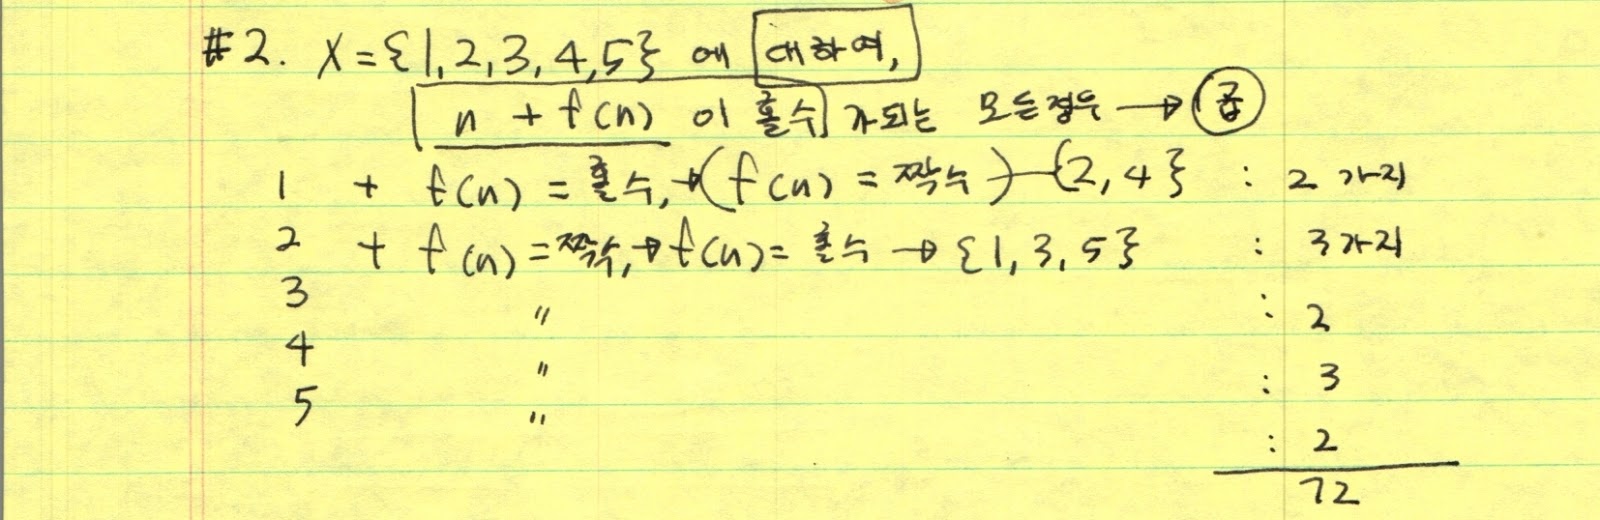 #2. X={1,2,3,4,5} 에 대하여,
n + f(n) 이 홀수 가되는 모든경우 → 곱
1 + f(n) = 홀수, → (f(n) = 짝수) - {2,4} : 2가지
2 + f(n) = 짝수, → f(n) = 홀수 → {1,3,5} : 3가지
3 〃 : 2
4 〃 : 3
5 〃 : 2
72